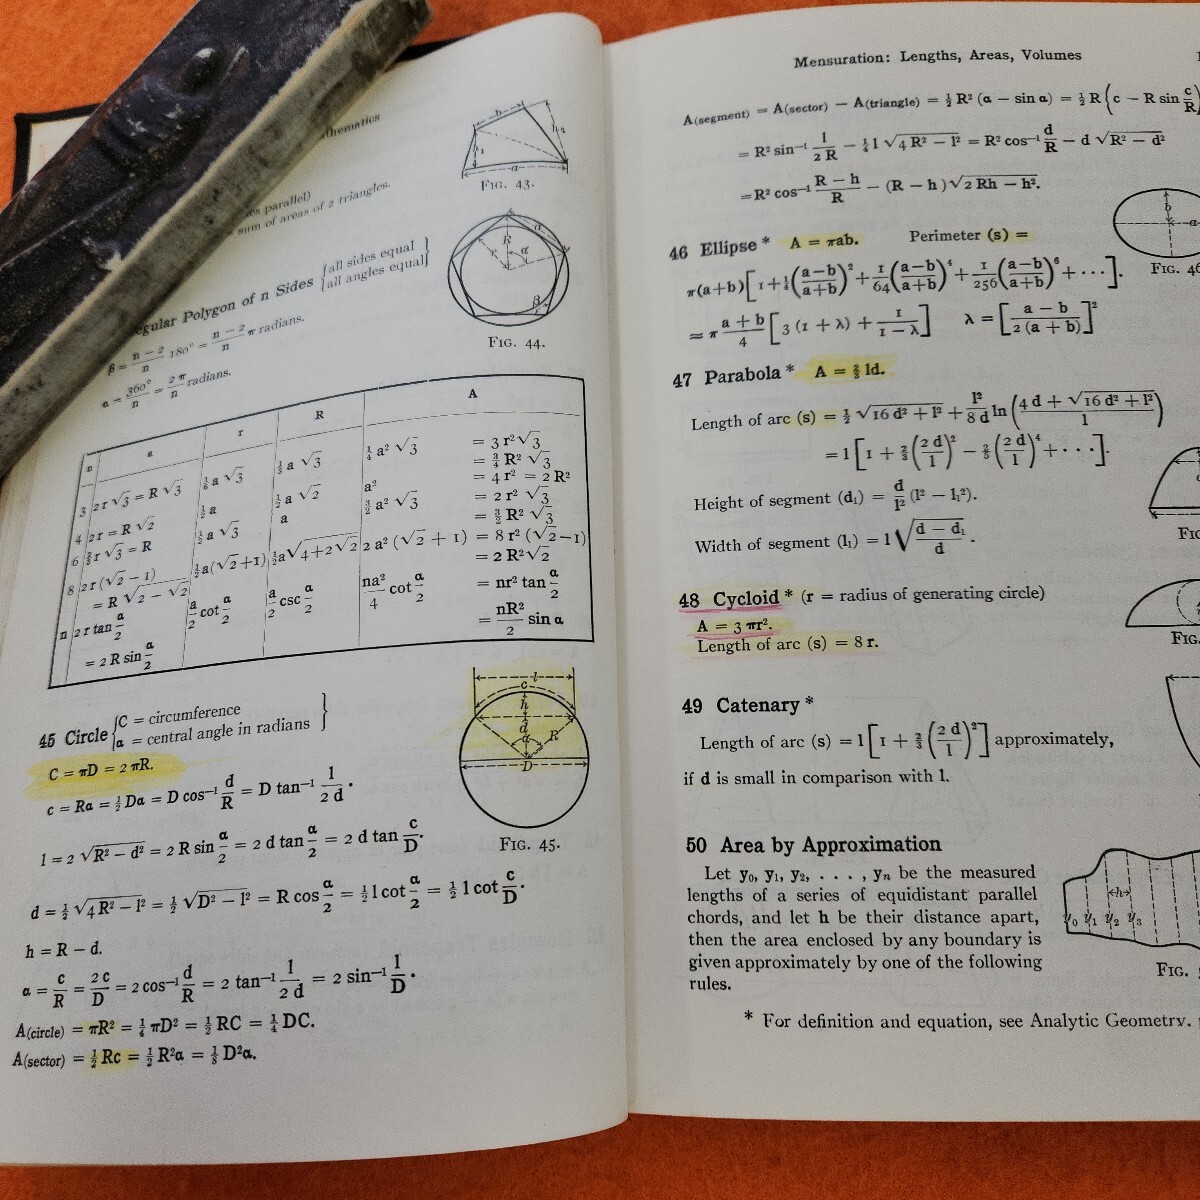 FIG. 43.
es parallel)
sum of areas of 2 triangles.
gular Polygon of n Sides {all sides equal
all angles equal}
β = n−2/n 180° = n−2/n π radians.
α = 360°/n = 2π/n radians.
FIG. 44.
n a r R A
3 2 r √3 = R √3 1/6 a √3 1/3 a √3 1/4 a² √3 = 3 r² √3
= 3/4 R² √3
4 2 r = R √2 1/2 a 1/2 a √2 a² = 4 r² = 2 R²
6 2/3 r √3 = R 1/2 a √3 a 3/2 a² √3 = 2 r² √3
= 3/2 R² √3
8 2 r (√2 − 1) 1/2 a (√2 + 1) 1/2 a √4 + 2 √2 2 a² (√2 + 1) = 8 r² (√2 − 1)
= R √2 − √2 = 2 R² √2
n 2 r tan α/2 a/2 cot α/2 a/2 csc α/2 na²/4 cot α/2 = nr² tan α/2
= 2 R sin α/2 = nR²/2 sin α
45 Circle {C = circumference
α = central angle in radians}
C = πD = 2 πR.
c = Rα = 1/2 Dα = D cos⁻¹ d/R = D tan⁻¹ 1/2 d.
l = 2 √R² − d² = 2 R sin α/2 = 2 d tan α/2 = 2 d tan c/D.
d = 1/2 √4 R² − l² = 1/2 √D² − l² = R cos α/2 = 1/2 l cot α/2 = 1/2 l cot c/D.
h = R − d.
α = c/R = 2 c/D = 2 cos⁻¹ d/R = 2 tan⁻¹ l/2 d = 2 sin⁻¹ l/D.
A(circle) = πR² = 1/4 πD² = 1/2 RC = 1/4 DC.
A(sector) = 1/2 Rc = 1/2 R²α = 1/8 D²α.
l
c
h
d
α
R
D
FIG. 45.
Mensuration: Lengths, Areas, Volumes
A(segment) = A(sector) − A(triangle) = 1/2 R² (α − sin α) = 1/2 R {c − R sin c/R}
= R² sin⁻¹ l/2 R − 1/4 l √4 R² − l² = R² cos⁻¹ d/R − d √R² − d²
= R² cos⁻¹ R − h/R − (R − h) √2 Rh − h².
46 Ellipse * A = πab. Perimeter (s) =
π(a+b)[1 + 1/4 (a−b/a+b)² + 1/64 (a−b/a+b)⁴ + 1/256 (a−b/a+b)⁶ + · · · ].
≈ π a + b/4 [3 (1 + λ) + 1/1 − λ] λ = [a − b/2 (a + b)]²
b
a
FIG. 46
47 Parabola * A = 2/3 ld.
Length of arc (s) = 1/2 √16 d² + l² + l²/8 d ln (4 d + √16 d² + l²/l)
= l [1 + 2/3 (2 d/l)² − 2/5 (2 d/l)⁴ + · · · ].
Height of segment (d₁) = d/l² (l² − l₁²).
Width of segment (l₁) = l √d − d₁/d.
48 Cycloid * (r = radius of generating circle)
A = 3 πr².
Length of arc (s) = 8 r.
FIG.
49 Catenary *
Length of arc (s) = l [1 + 2/3 (2 d/l)²] approximately,
if d is small in comparison with l.
50 Area by Approximation
Let y₀, y₁, y₂, . . . , yₙ be the measured
lengths of a series of equidistant parallel
chords, and let h be their distance apart,
then the area enclosed by any boundary is
given approximately by one of the following
rules.
h
y₀ y₁ y₂ y₃
FIG.
* For definition and equation, see Analytic Geometry.